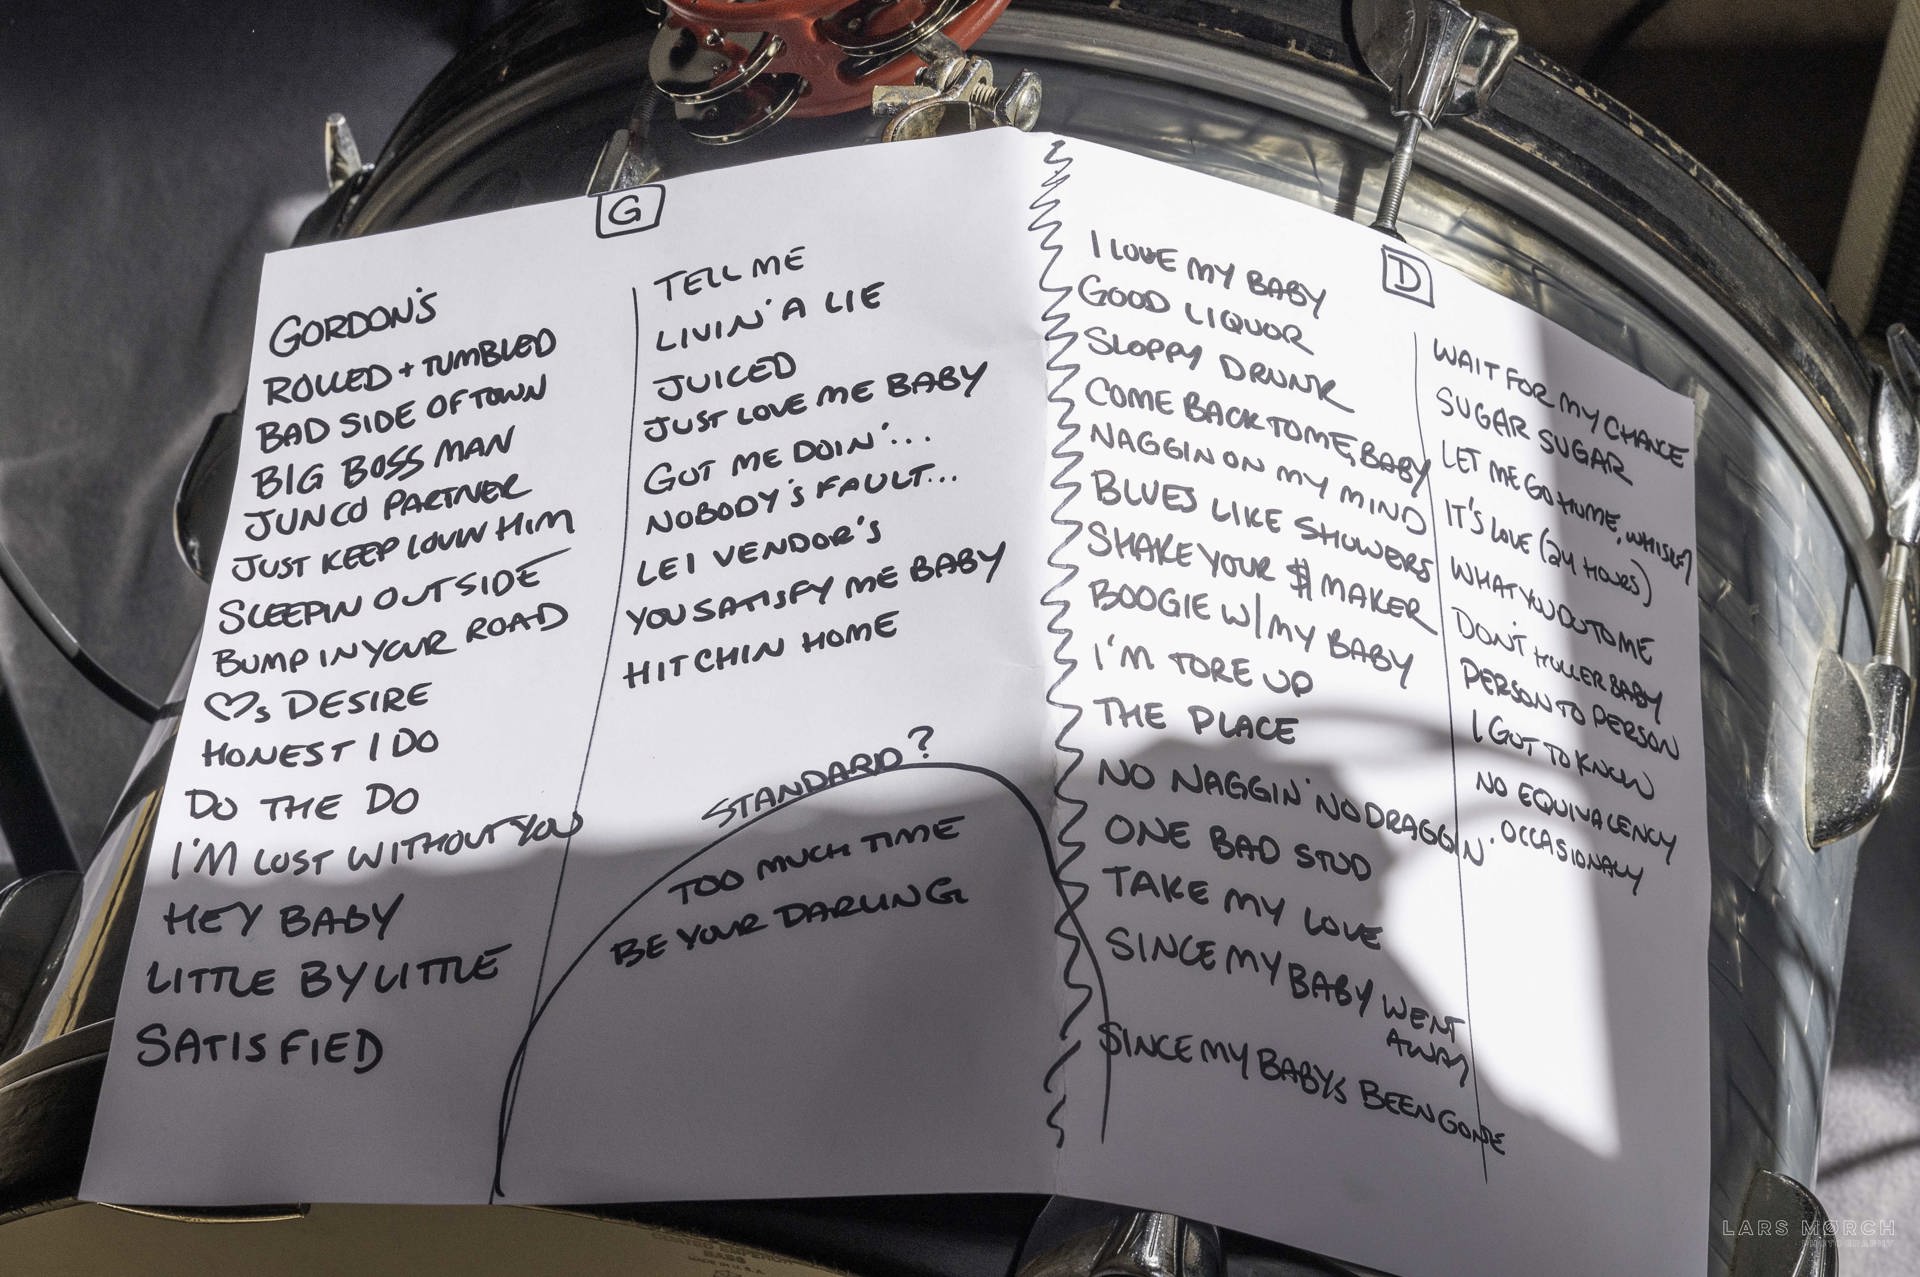 G
GORDON'S
ROLLED + TUMBLED
BAD SIDE OF TOWN
BIG BOSS MAN
JUNCO PARTNER
JUST KEEP LOVIN HIM
SLEEPIN OUTSIDE
BUMP IN YOUR ROAD
♡S DESIRE
HONEST I DO
DO THE DO
I'M LOST WITHOUT YOU
HEY BABY
LITTLE BY LITTLE
SATISFIED
TELL ME
LIVIN' A LIE
JUICED
JUST LOVE ME BABY
GOT ME DOIN'...
NOBODY'S FAULT...
LEI VENDOR'S
YOU SATISFY ME BABY
HITCHIN HOME
STANDARD?
TOO MUCH TIME
BE YOUR DARLING
D
I LOVE MY BABY
GOOD LIQUOR
SLOPPY DRUNK
COME BACK TO ME, BABY
NAGGIN ON MY MIND
BLUES LIKE SHOWERS
SHAKE YOUR $ MAKER
BOOGIE W/ MY BABY
I'M TORE UP
THE PLACE
NO NAGGIN' NO DRAGGIN'
ONE BAD STUD
TAKE MY LOVE
SINCE MY BABY WENT
AWAY
SINCE MY BABYS BEEN GONE
WAIT FOR MY CHANCE
SUGAR SUGAR
LET ME GO HOME, WHISKEY
IT'S LOVE (24 HOURS)
WHAT YOU DO TO ME
DON'T HOLLER BABY
PERSON TO PERSON
I GOT TO KNOW
NO EQUIVALENCY
OCCASIONALY
LARS MØRCH
PHOTOGRAPHY